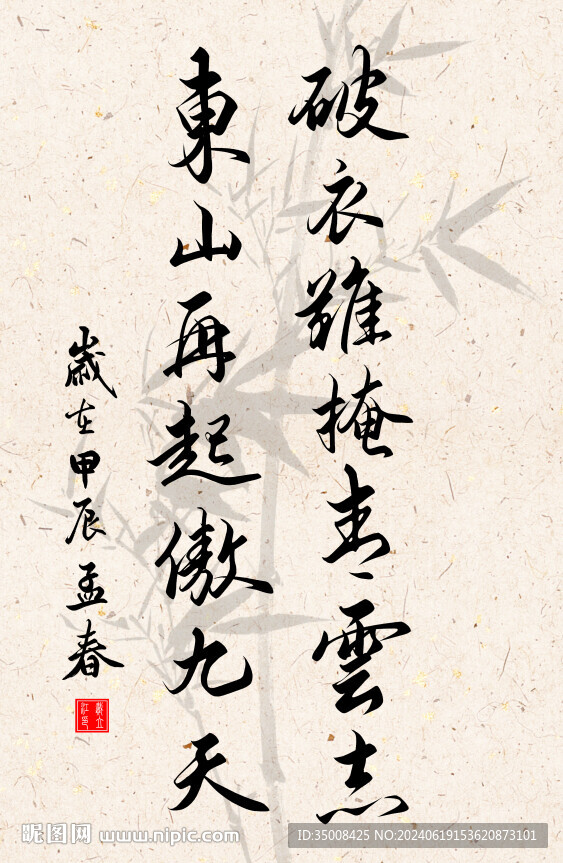 破衣雖掩青雲志
東山再起傲九天
歲在甲辰孟春
昵图网 www.nipic.com
ID:35008425 NO:20240619153620873101